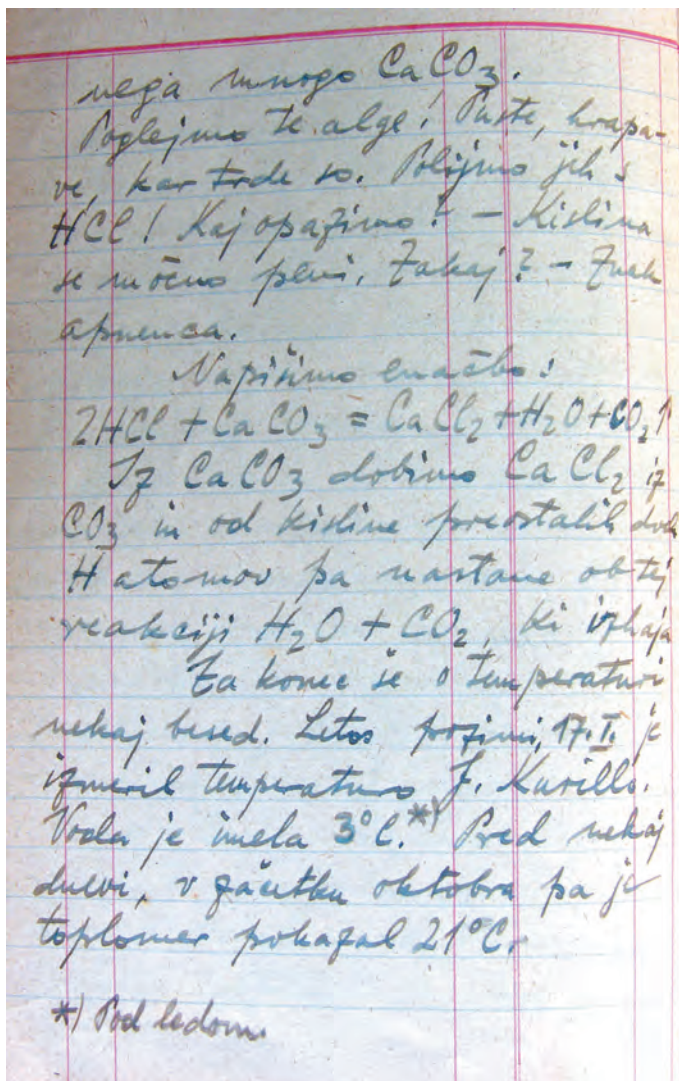 nega mnogo CaCO₃.
Poglejmo te alge! Puste, hrapa-
ve, kar trde so. Polijmo jih s
HCl! Kaj opazimo? – Kislina
se močno peni. Zakaj? – Znak
apnenca.
Napišimo enačbo:
2HCl + CaCO₃ = CaCl₂ + H₂O + CO₂↑
Iz CaCO₃ dobimo CaCl₂ iz
CO₃ in od kisline preostalih dveh
H atomov pa nastane ob tej
reakciji H₂O + CO₂, ki izhaja
Za konec še o temperaturi
nekaj besed. Letos pozimi, 17. I. je
izmeril temperaturo J.
Voda je imela 3°C.*) Pred nekaj
dnevi, v začetku oktobra pa je
toplomer pokazal 21°C.
*) Pod ledom.